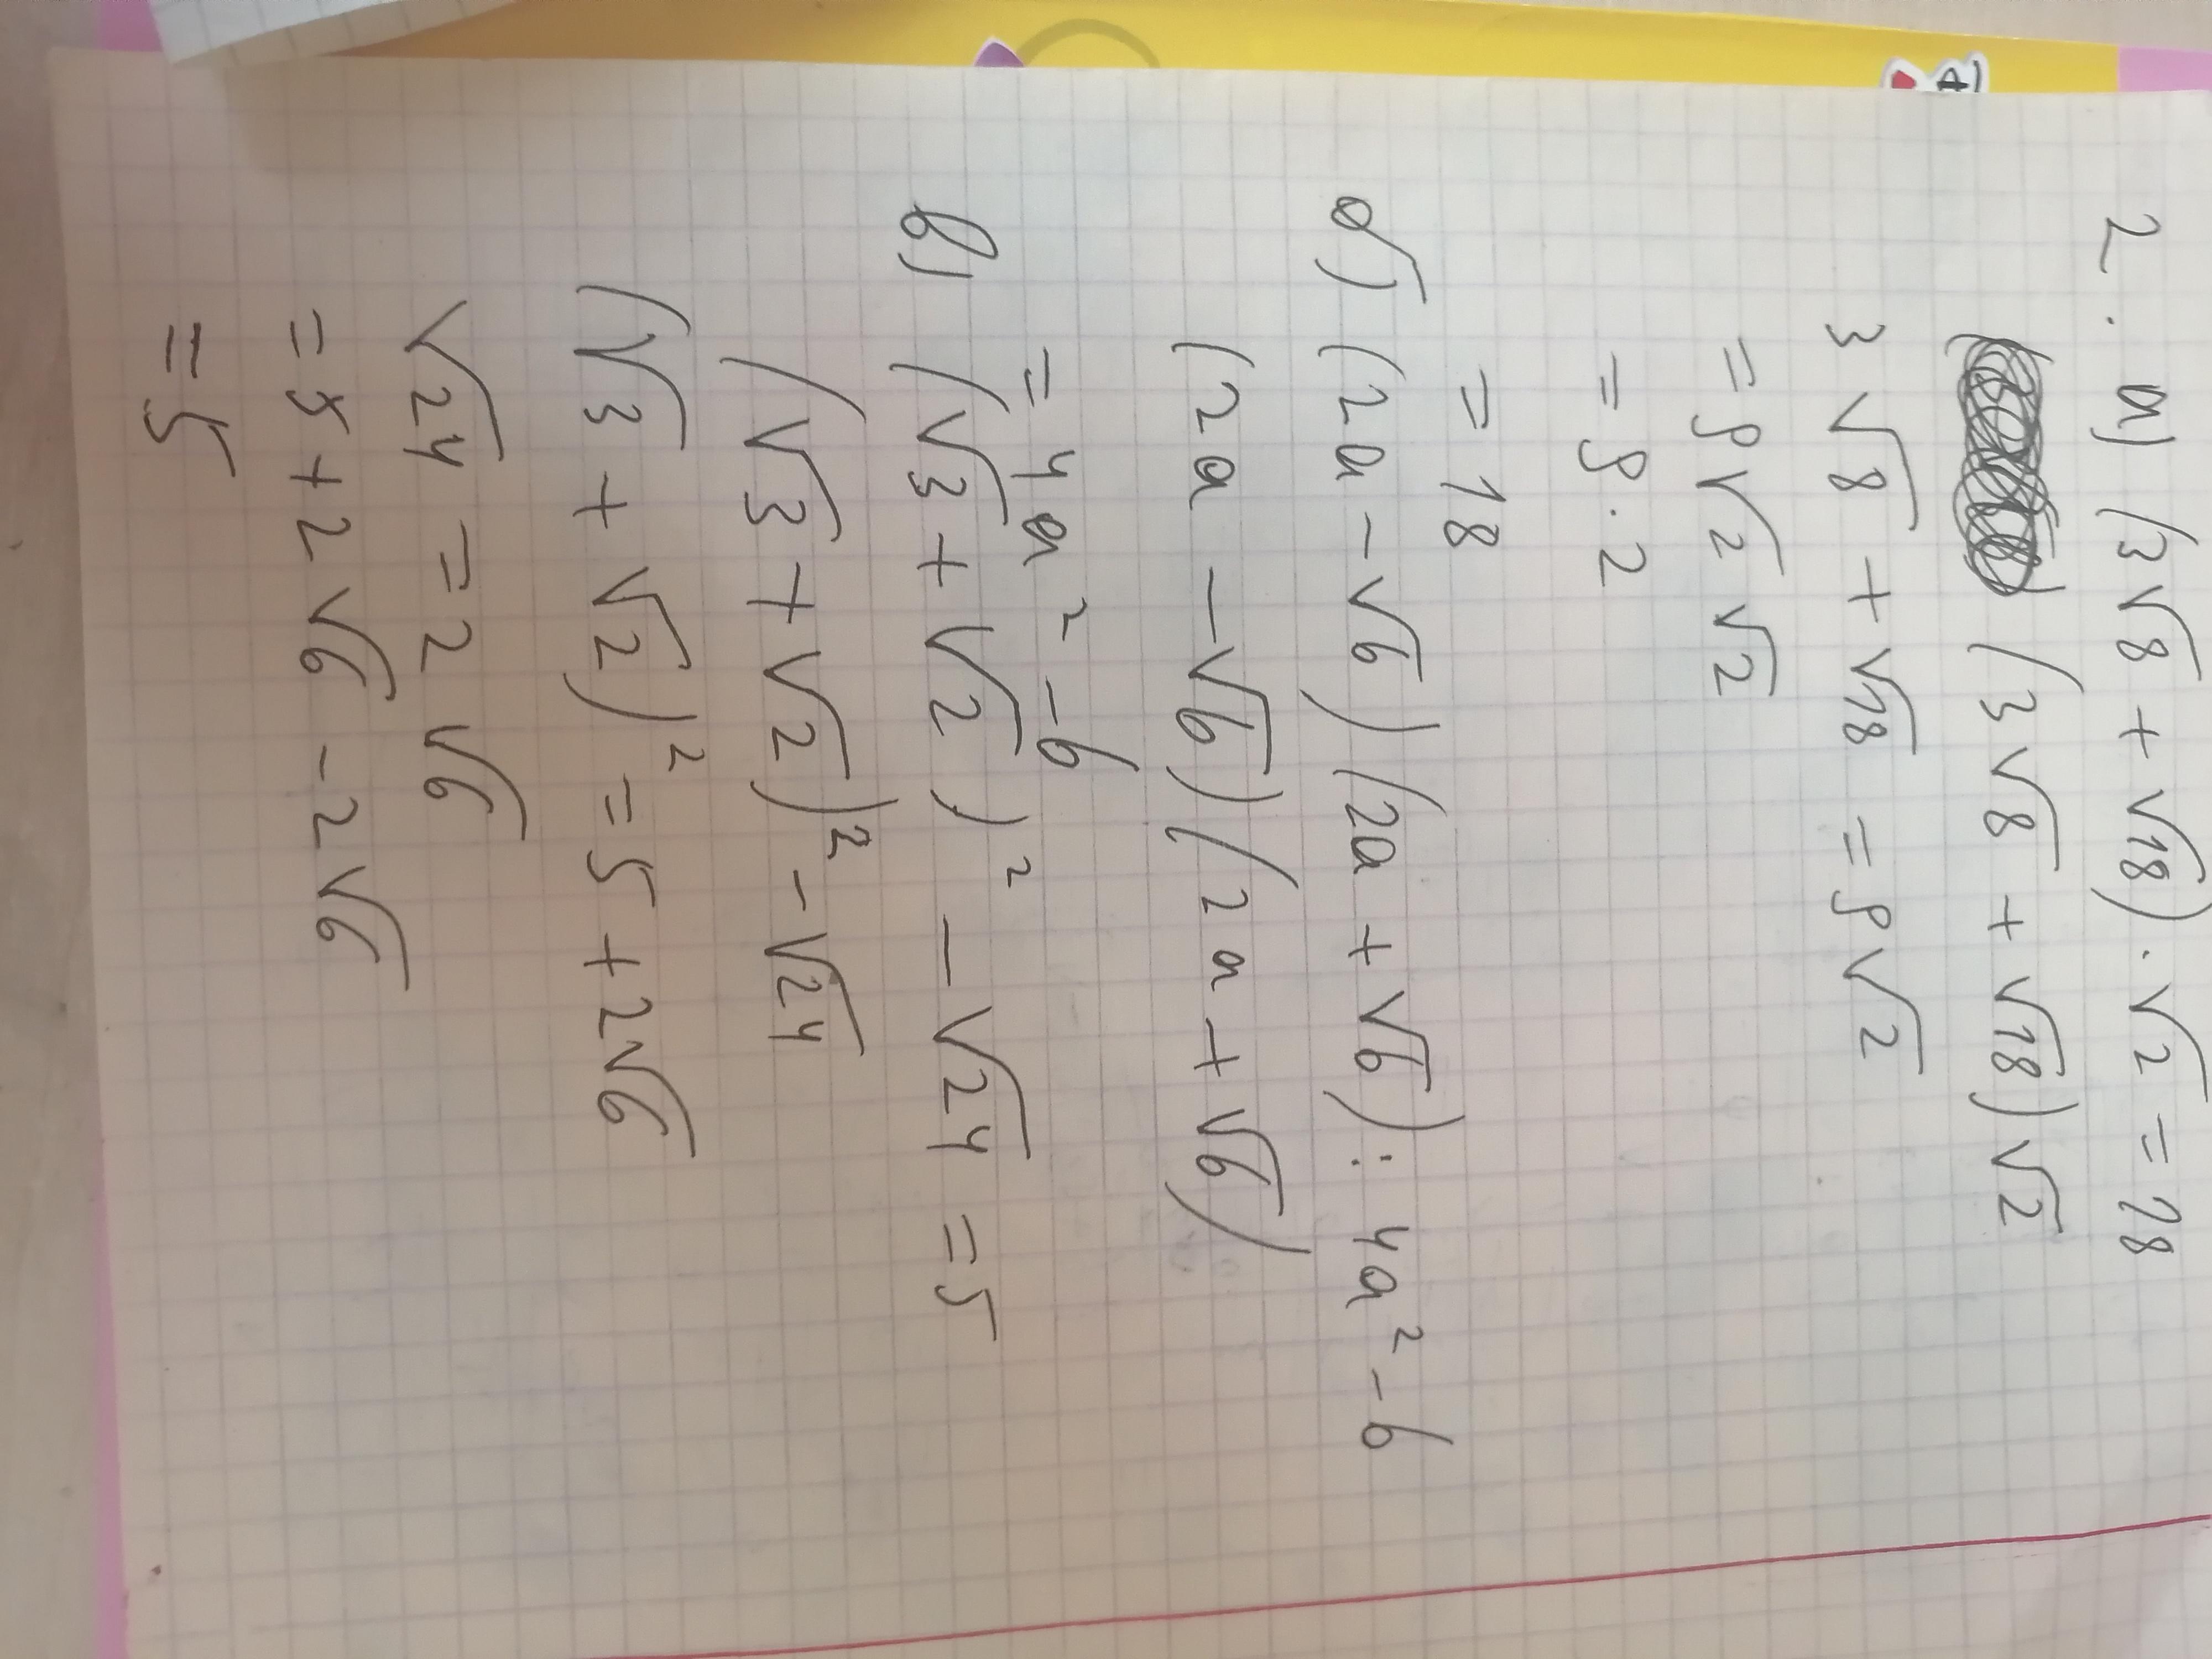 2. а) (3√8 + √18) · √2 = 18
(3√8 + √18)√2
3√8 + √18 = 9√2
= 9√2√2
= 9·2
= 18
б) (2a - √6)(2a + √6): 4a² - 6
(2a - √6)(2a + √6)
= 4a² - 6
в) (√3 + √2)² - √24 = 5
(√3 + √2)² - √24
(√3 + √2)² = 5 + 2√6
√24 = 2√6
= 5 + 2√6 - 2√6
= 5